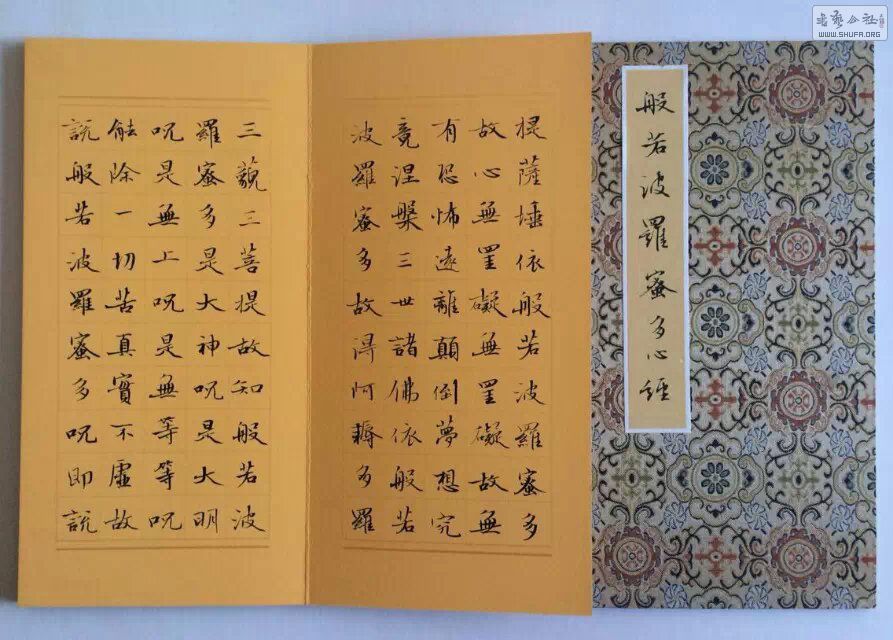 般若波羅蜜多心經
提薩埵依般若波羅蜜多
故心無罣礙無罣礙故無
有恐怖遠離顛倒夢想究
竟涅槃三世諸佛依般若
波羅蜜多故得阿耨多羅
三藐三菩提故知般若波
羅蜜多是大神呪是大明
呪是無上呪是無等等呪
能除一切苦真實不虛故
說般若波羅蜜多呪即說
书艺公社
WWW.SHUFA.ORG